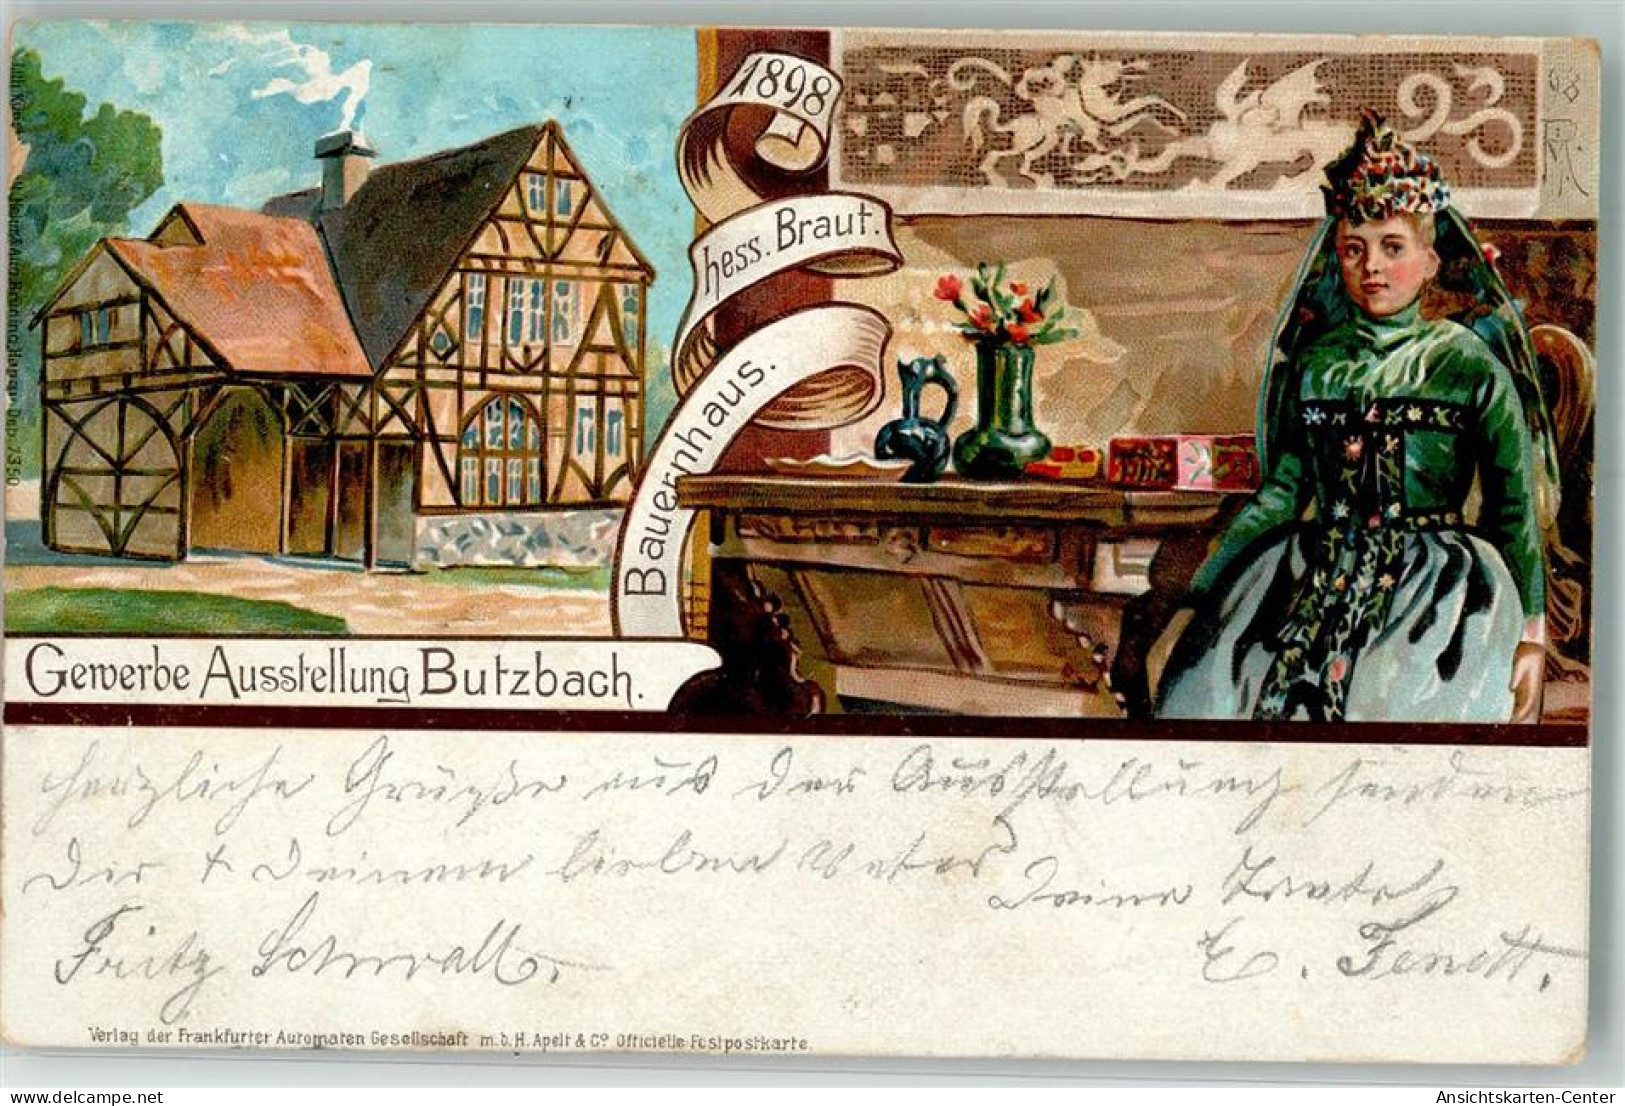 1898
hess. Braut.
Bauernhaus.
Gewerbe Ausstellung Butzbach.
93
herzliche Grüße aus der Ausstellung senden
Dir + Deinem lieben Vater
Deine Tante
Fritz Schwalb.
E. Fenott.
Verlag der Frankfurter Automaten Gesellschaft m.b.H. Apelt & Co. Officielle Festpostkarte.
Ansichtskarten-Center